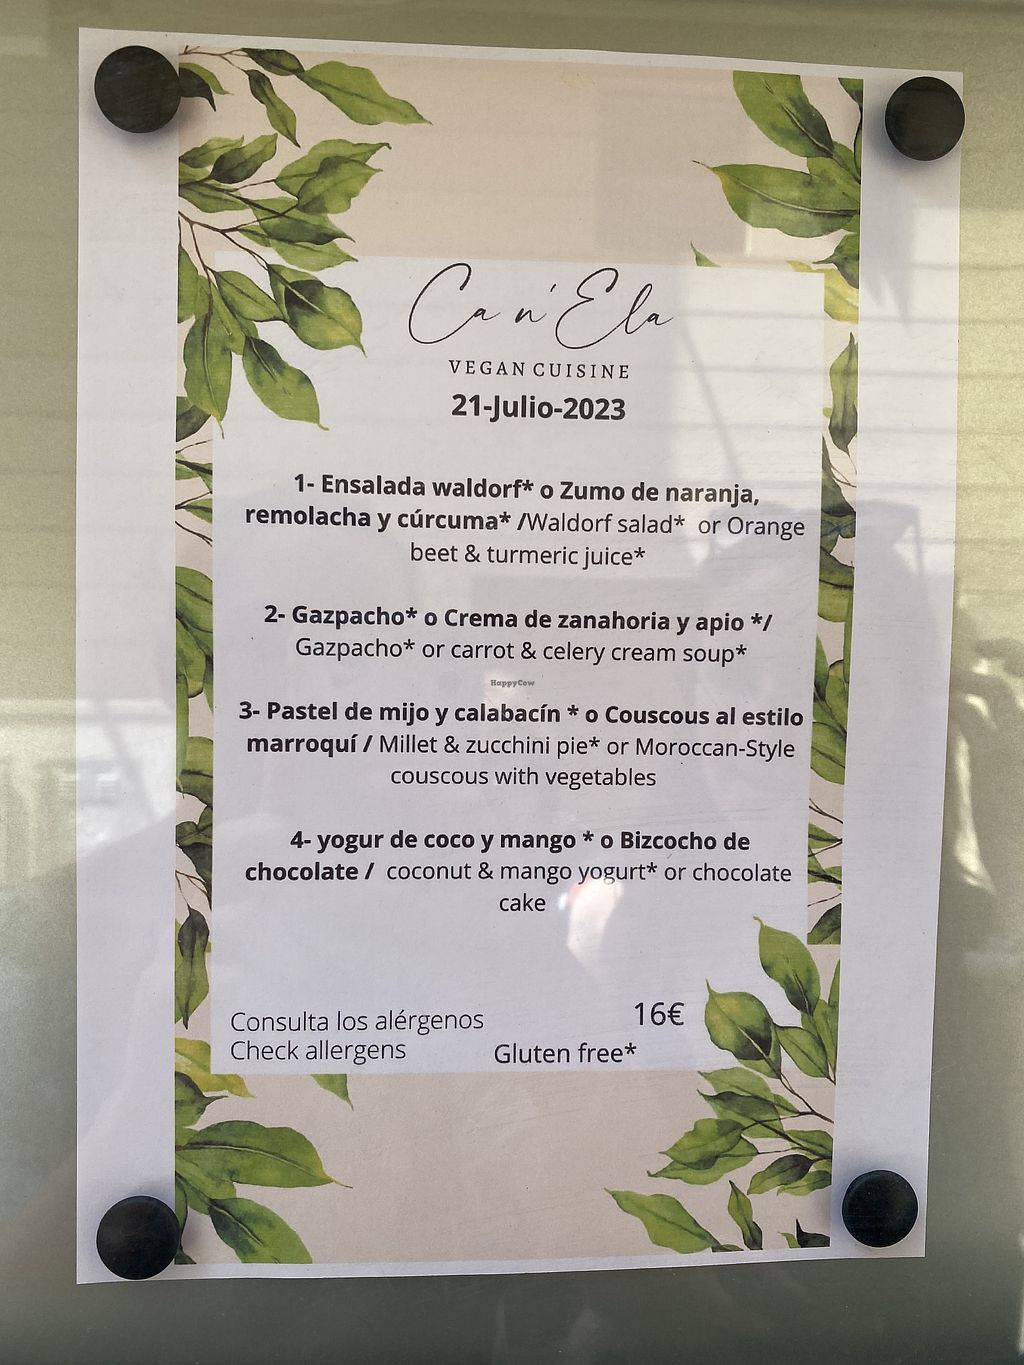 Ca n' Ela
VEGAN CUISINE
21-Julio-2023
1- Ensalada waldorf* o Zumo de naranja,
remolacha y cúrcuma* /Waldorf salad* or Orange
beet & turmeric juice*
2- Gazpacho* o Crema de zanahoria y apio */
Gazpacho* or carrot & celery cream soup*
HappyCow
3- Pastel de mijo y calabacín * o Couscous al estilo
marroquí / Millet & zucchini pie* or Moroccan-Style
couscous with vegetables
4- yogur de coco y mango * o Bizcocho de
chocolate / coconut & mango yogurt* or chocolate
cake
Consulta los alérgenos
16€
Check allergens
Gluten free*